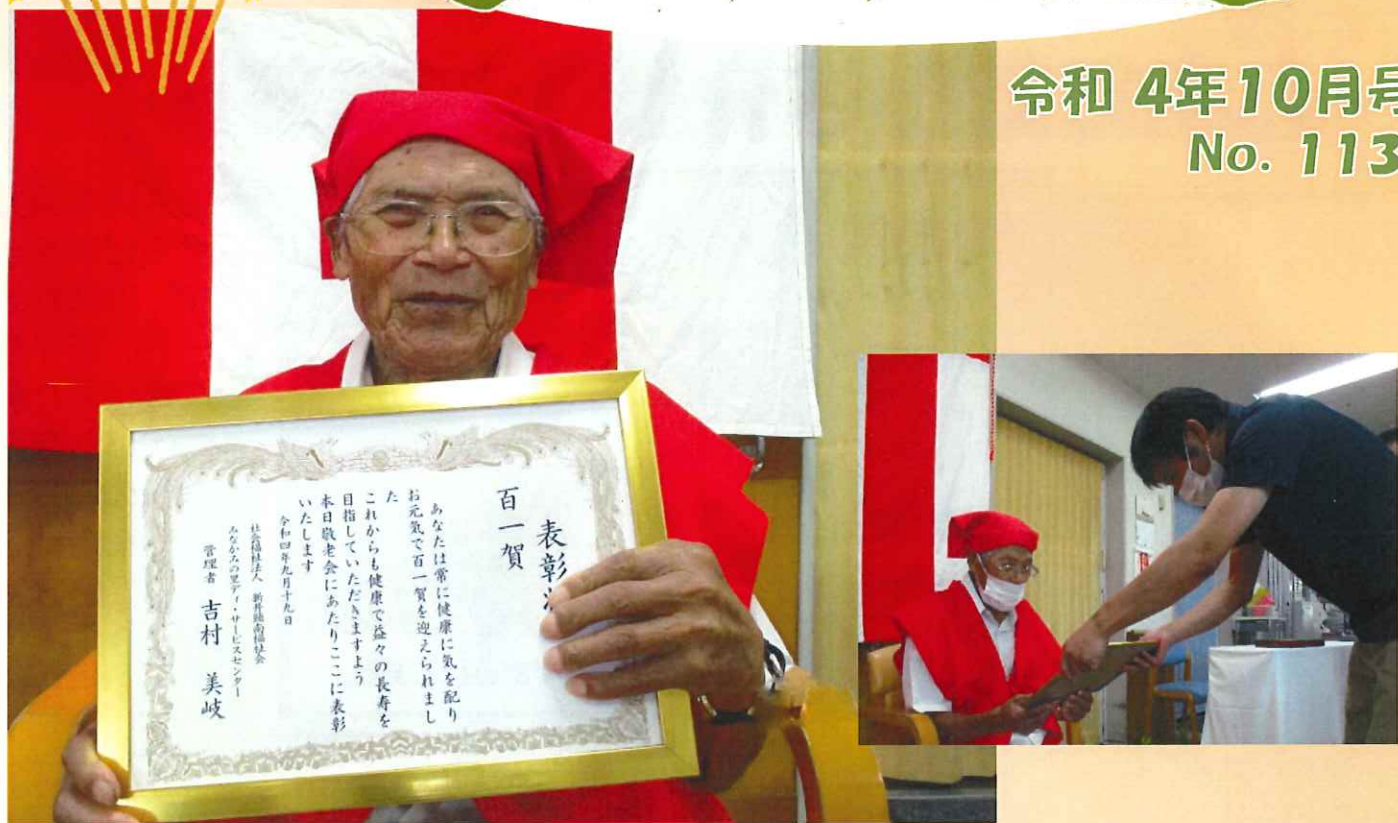 令和 4年10月号
No. 113
表彰
百一賀
あなたは常に健康に気を配り
お元気で百一賀を迎えられまし
た
これからも健康で益々の長寿を
目指していただきますよう
本日敬老会にあたりここに表彰
いたします
令和四年九月十九日
社会福祉法人 新井頸南福祉会
みなかみの里デイ・サービスセンター
管理者 吉村 美岐